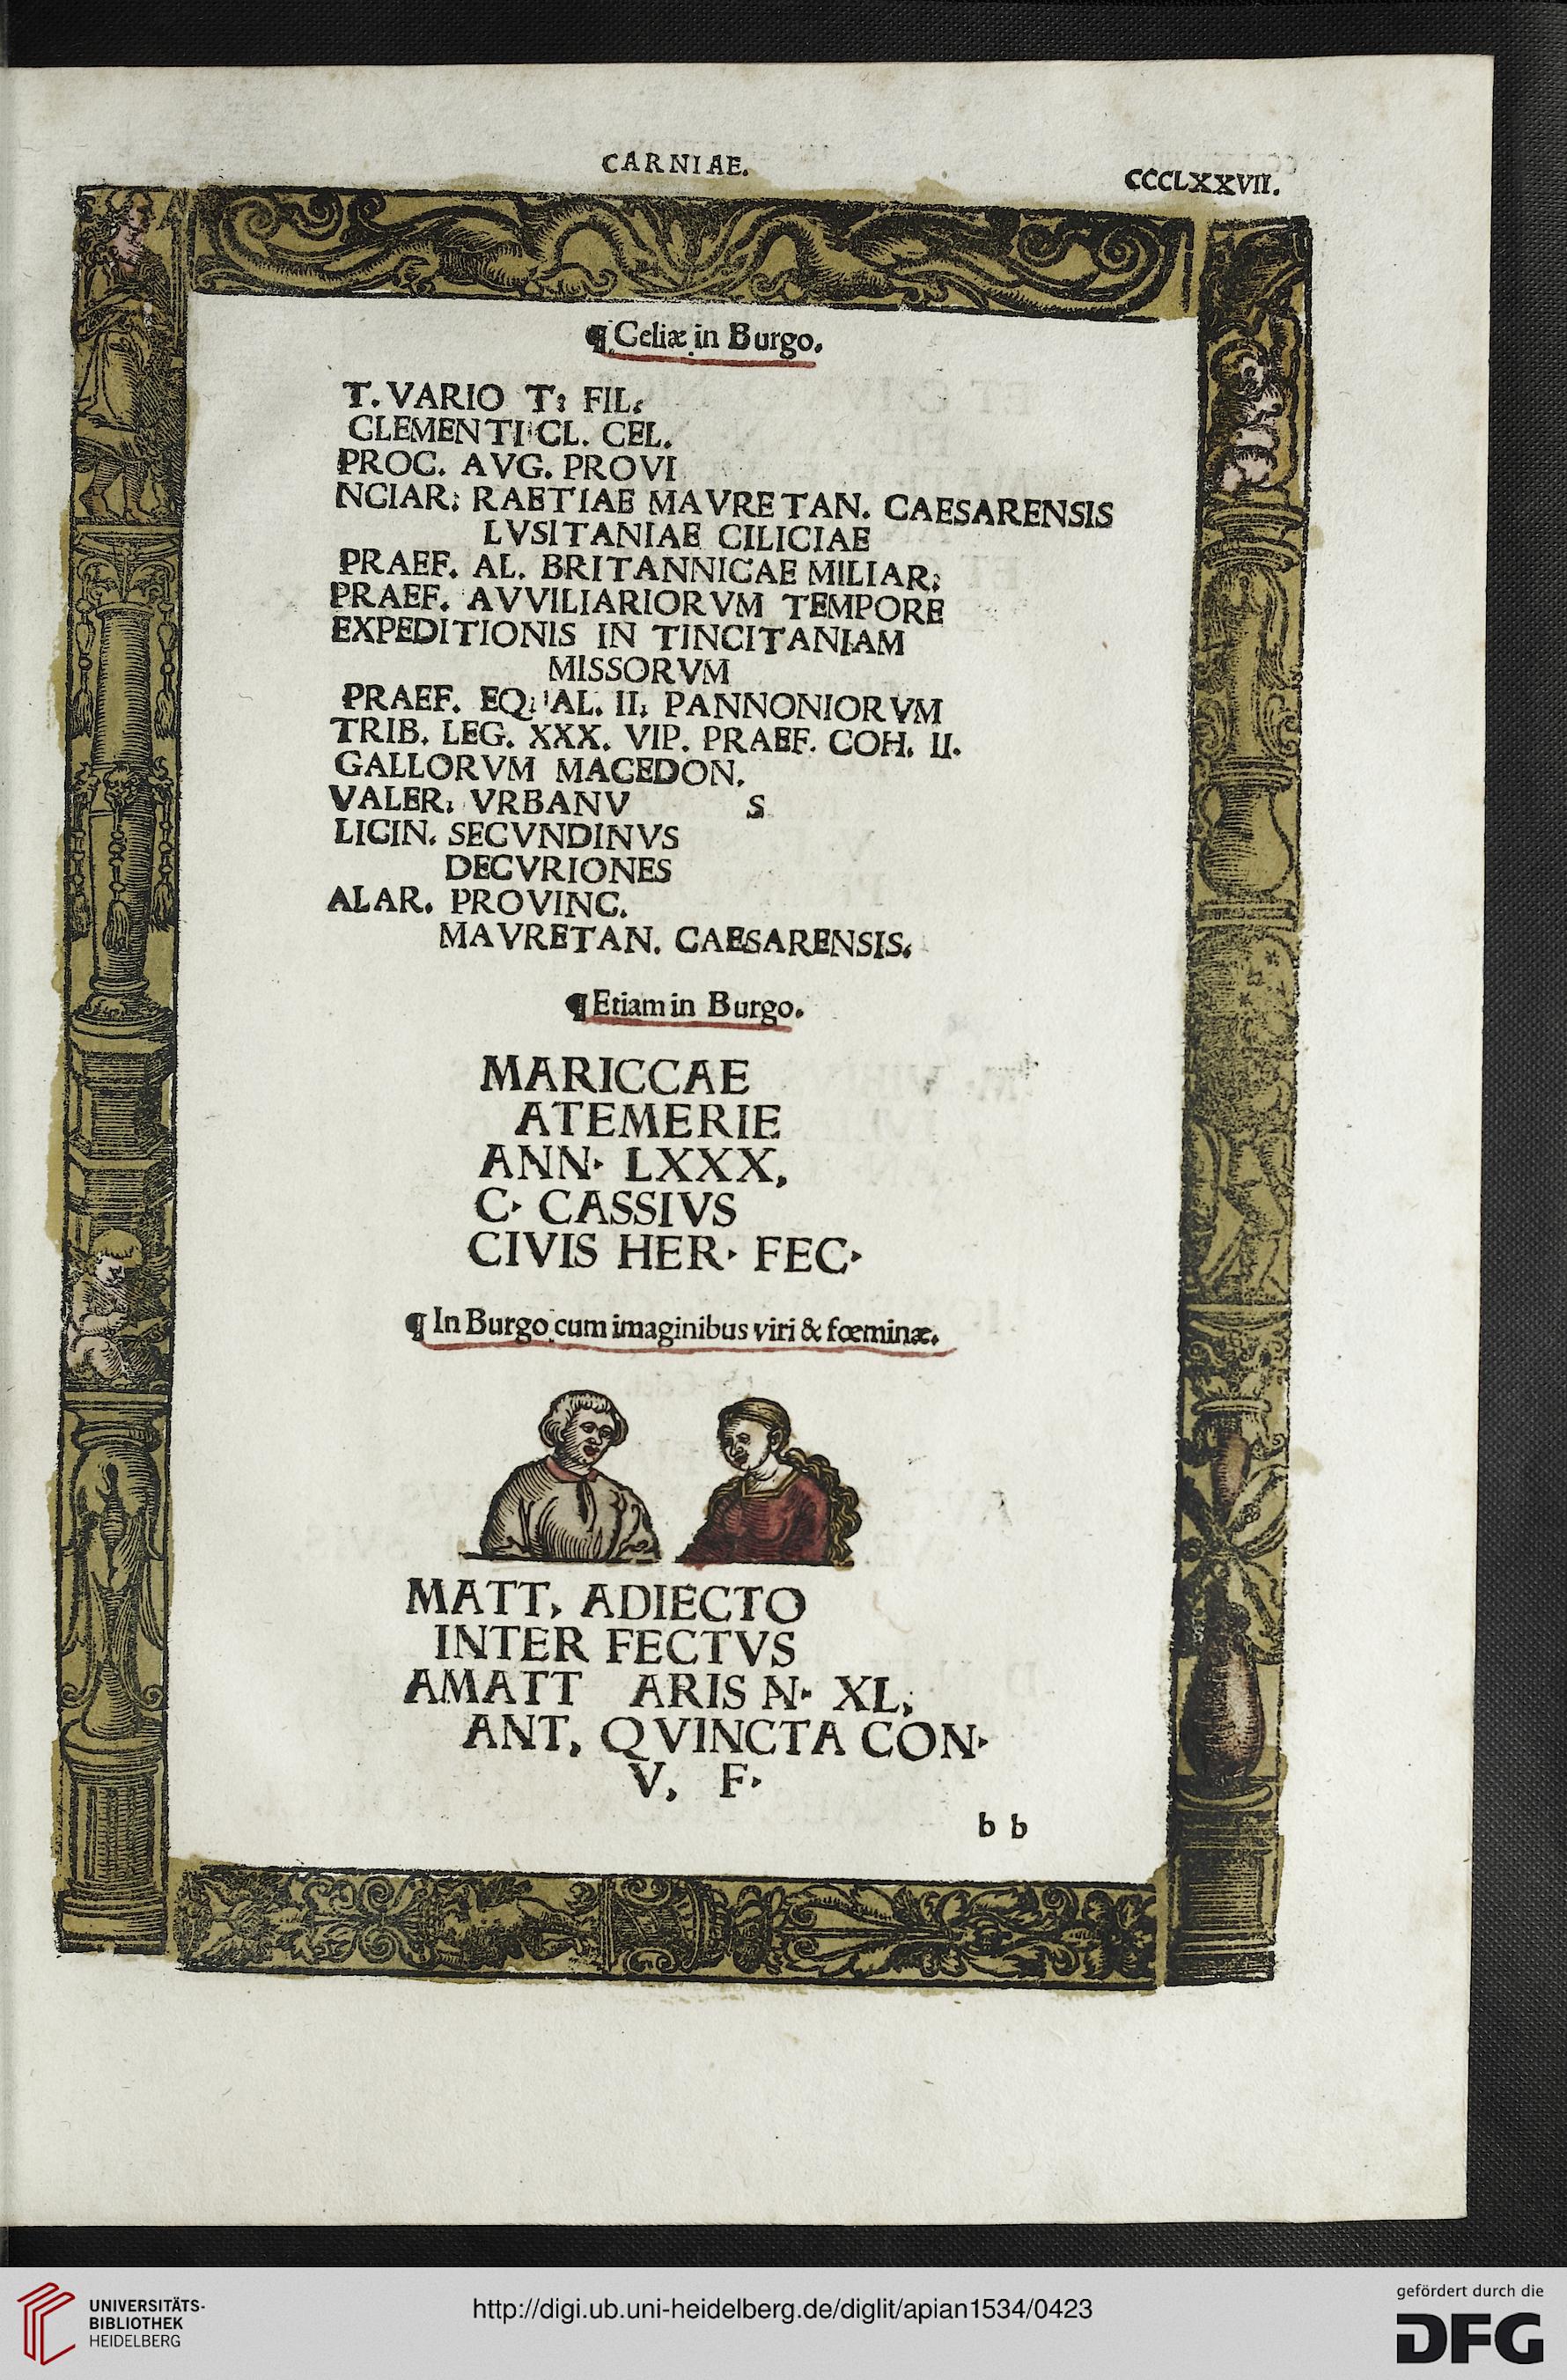 CARNIAE.
CCCLXXVII.
¶ Celiæ in Burgo.
T. VARIO T: FIL:
CLEMENTI CL. CEL.
PROC. AVG. PROVI
NCIAR: RAETIAE MAVRETAN. CAESARENSIS
LVSITANIAE CILICIAE
PRAEF. AL. BRITANNICAE MILIAR:
PRAEF. AVVILIARIORVM TEMPORE
EXPEDITIONIS IN TINCITANIAM
MISSORVM
PRAEF. EQ: AL. II: PANNONIORVM
TRIB. LEG. XXX. VIP. PRAEF. COH. II.
GALLORVM MACEDON.
VALER: VRBANV S
LICIN. SECVNDINVS
DECVRIONES
ALAR. PROVINC.
MAVRETAN. CAESARENSIS.
¶ Etiam in Burgo.
MARICCAE
ATEMERIE
ANN· LXXX,
C· CASSIVS
CIVIS HER· FEC·
¶ In Burgo cum imaginibus viri & fœminæ.
MATT, ADIECTO
INTER FECTVS
AMATT ARIS N· XL,
ANT, QVINCTA CON·
V, F·
b b
UNIVERSITÄTS-
BIBLIOTHEK
HEIDELBERG
http://digi.ub.uni-heidelberg.de/diglit/apian1534/0423
gefördert durch die
DFG